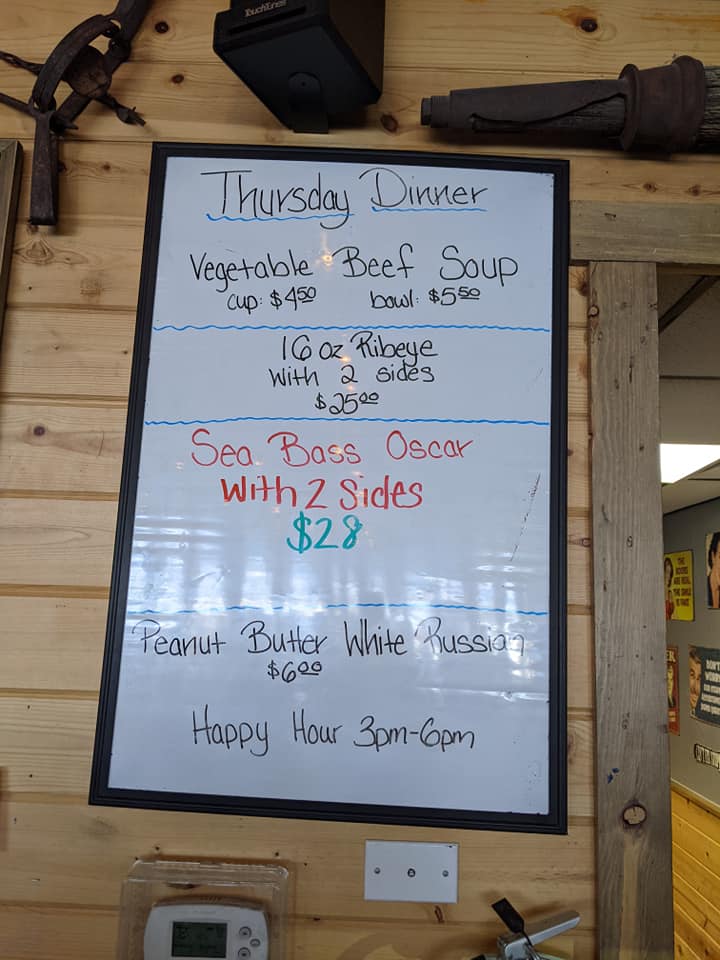 TouchTunes
Thursday Dinner
Vegetable Beef Soup
cup: $4.50 bowl: $5.50
16 oz Ribeye
with 2 sides
$25.00
Sea Bass Oscar
With 2 Sides
$28
Peanut Butter White Russian
$6.00
Happy Hour 3pm-6pm
THE
BOOBS
ARE REAL
THE SMILE
IS FAKE